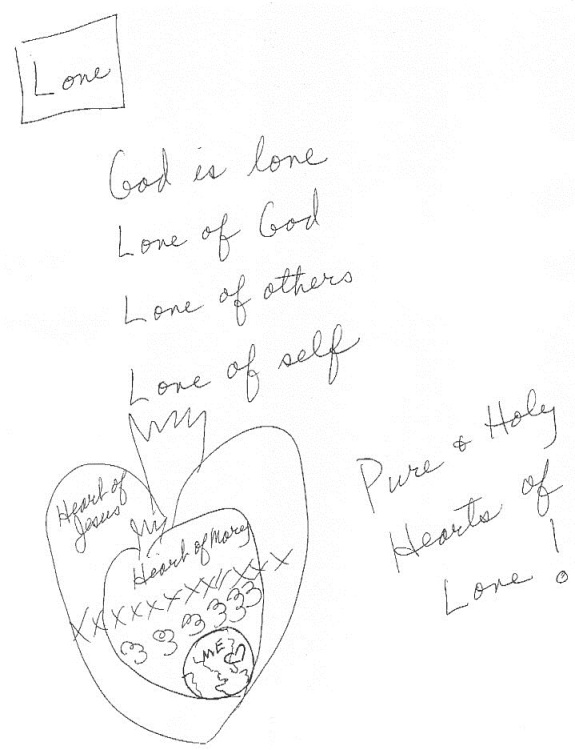 Love
God is love
Love of God
Love of others
Love of self
Pure & Holy
Hearts of
Love!
Heart of
Jesus
Heart of Mary
ME